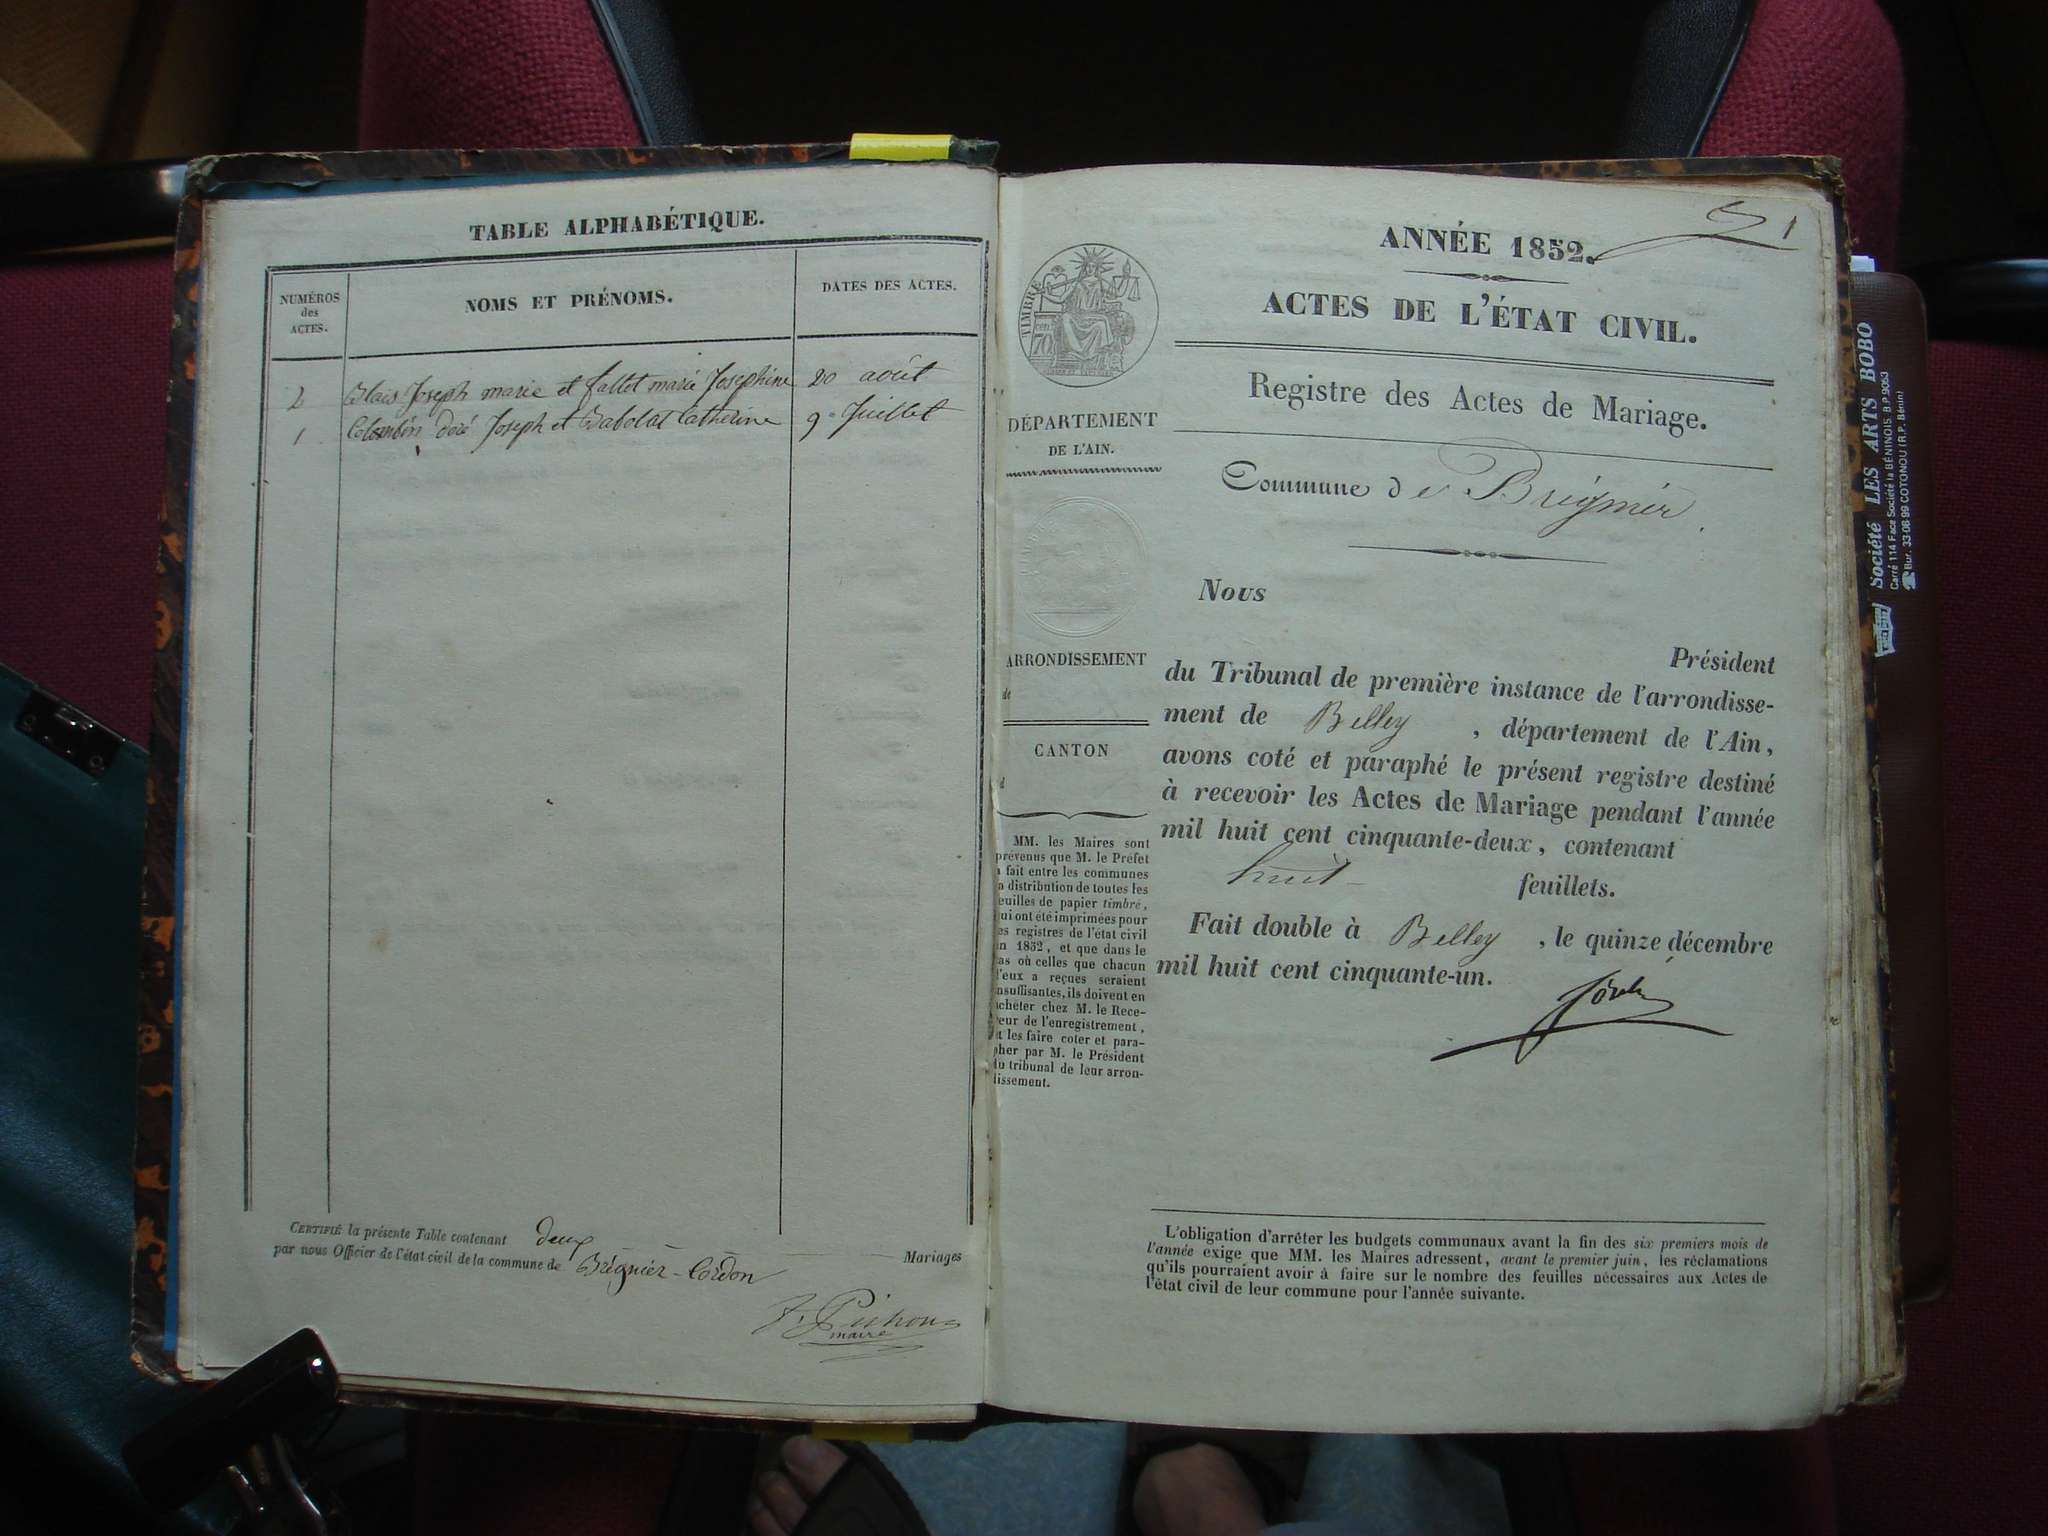 TABLE ALPHABÉTIQUE.
NUMÉROS
des
ACTES.
NOMS ET PRÉNOMS.
DATES DES ACTES.
2 Blais Joseph marie et fallet marie Josephine 20 août
1 Colombin doré Joseph et Babolat Catherine 9 Juillet
CERTIFIÉ la présente Table contenant deux Mariages
par nous Officier de l'état civil de la commune de Brégnier-Cordon
Pichon
maire
1
ANNÉE 1852.
ACTES DE L'ÉTAT CIVIL.
Registre des Actes de Mariage.
Commune de Brégnier.
TIMBRE
70
DÉPARTEMENT
DE L'AIN.
ARRONDISSEMENT
de
CANTON
d
MM. les Maires sont
prévenus que M. le Préfet
a fait entre les communes
la distribution de toutes les
feuilles de papier timbré,
qui ont été imprimées pour
les registres de l'état civil
en 1852, et que dans le
cas où celles que chacun
d'eux a reçues seraient
insuffisantes, ils doivent en
acheter chez M. le Rece-
veur de l'enregistrement,
et les faire coter et para-
pher par M. le Président
du tribunal de leur arron-
dissement.
Nous
Président
du Tribunal de première instance de l'arrondisse-
ment de Belley , département de l'Ain,
avons coté et paraphé le présent registre destiné
à recevoir les Actes de Mariage pendant l'année
mil huit cent cinquante-deux, contenant
huit feuillets.
Fait double à Belley , le quinze décembre
mil huit cent cinquante-un.
L'obligation d'arrêter les budgets communaux avant la fin des six premiers mois de
l'année exige que MM. les Maires adressent, avant le premier juin, les réclamations
qu'ils pourraient avoir à faire sur le nombre des feuilles nécessaires aux Actes de
l'état civil de leur commune pour l'année suivante.
Société LES ARTS BOBO
Carré 114 Face Société la BÉNINOIS B.P. 9053
Bur. 33-06-99 COTONOU (R.P. Bénin)